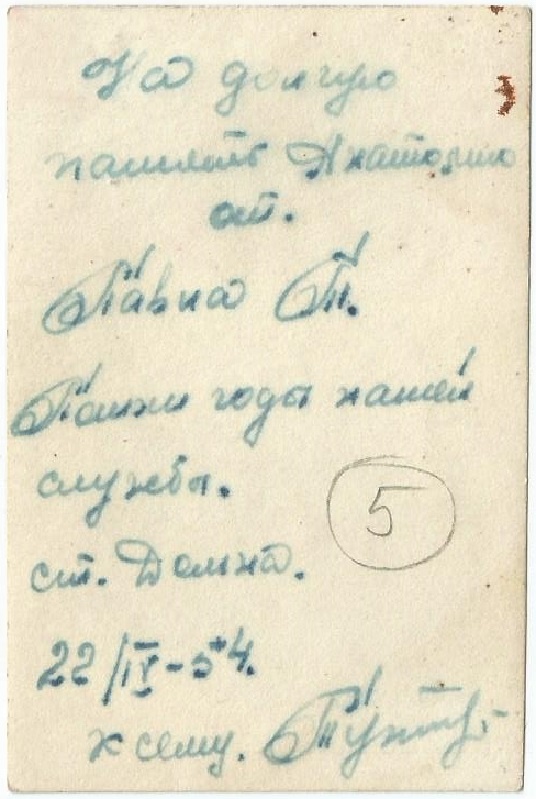 На долгую
память Анатолию
от.
Павла Т.
Помни годы нашей
службы.
5
ст. Домна.
22/IV-54.
к сему.